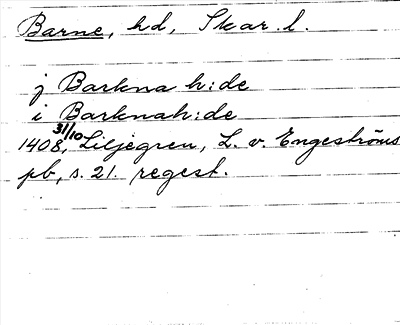 Barne, hd, Skar. l.
j Barkna h:de
i Barknah:de
1408 31/10, Liljegren, L. v. Engeströms
pb, s. 21. regest.